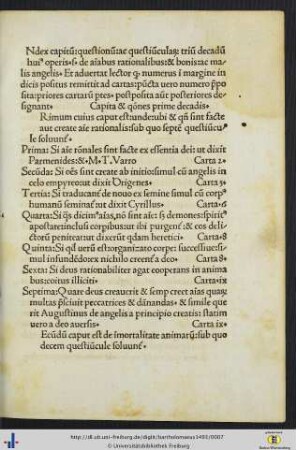 Ndex capitũ: questionũ ac questiũculaꝝ triũ decadũ
huiꝰ operis .s. de aĩabus rationalibus: & bonis ac ma
lis angelis. Et aduertat lector ꝙ numerus ĩ margine in
dicis positus remittit ad cartas: pũcta uero numero p̃po
sita: priores cartarũ p̃tes. postposita aũt posteriores de
signant. Capita & q̃ones prime decadis.
Rimum euius caput est: unde: ubi & qñ sint facte
aut create aĩe rationalis: sub quo septẽ questiũcu
le soluunt̃.
Prima: Si aĩe rõnales sint facte ex essentia dei: ut dixit
Parmenides: &. M. T. Varro Carta 2.
Secũda: Si oẽs sint create ab initio: simul cũ angelis in
celo empyreo: ut dixit Origenes. Carta 5.
Tertia: Si traducant̃ de nouo ex semine simul cũ corpe
humanũ seminat̃: ut dixit Cyrillus. Carta.6
Quarta: Si q̃s dicimꝰ aĩas, nõ sint aĩe: sꝫ demones: spiritꝰ
apostate: inclusi corpibus: ut ibi purgent̃: & eos delic
torũ peniteat: ut dixerũt qdam heretici. Carta.8
Quinta: Si qlꝫ uerũ est: organizato corpei successiue: si
mul infundẽdo: ex nichilo creent̃ a deo. Carta 8.
Sexta: Si deus rationabiliter agat cooperans in anima
bus: coitus illiciti. Carta.ix
Septima: Quare deus creauerit & semp creet aĩas quas
multas p̃sciuit peccatrices & dãnandas. & simile que
rit Augustinus de angelis a principio creatis: statim
uero a deo auersis. Carta ix.
Ecũdũ caput est de ĩmortalitate animarũ: sub quo
decem questiũcule soluunt̃.
http://dl.ub.uni-freiburg.de/diglit/bartholomaeus1493/0007
Universitätsbibliothek Freiburg